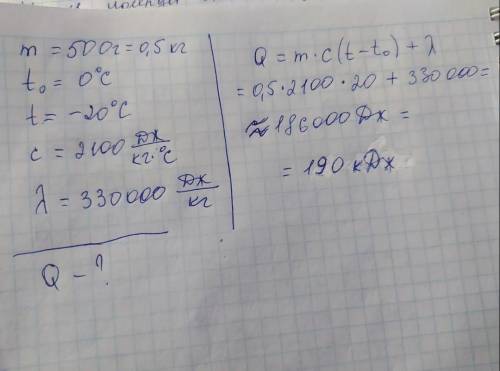 m = 500г = 0,5 кг
t₀ = 0°C
t = -20°C
c = 2100 Дж/кг·°C
λ = 330000 Дж/кг
Q - ?
Q = m·c(t-t₀) + λ
= 0,5·2100·20 + 330000 =
≈ 186000 Дж =
= 190 кДж